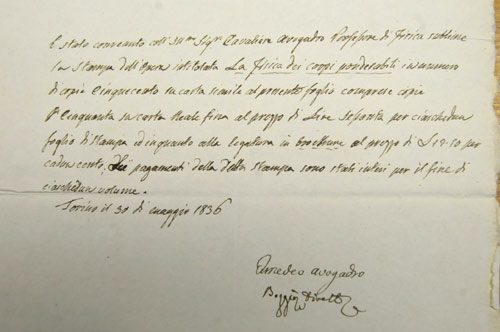 È stato convenuto coll' Ill.mo Sig.r Cavaliere Avogadro Professore di Fisica sublime
la Stampa dell'Opera intitolata La fisica dei corpi ponderabili in numero
di copie Cinquecento in carta simile al presente foglio comprese copie
Cinquanta in carta Reale fina al prezzo di Lire Sessanta per ciaschedun
foglio di stampa ed in quanto alla legatura in brochure al prezzo di L 12-50 per
cadun cento, pagamenti della detta stampa sono stati intesi per il fine di
ciaschedun volume.
Torino il 30 di maggio 1836
Amedeo Avogadro